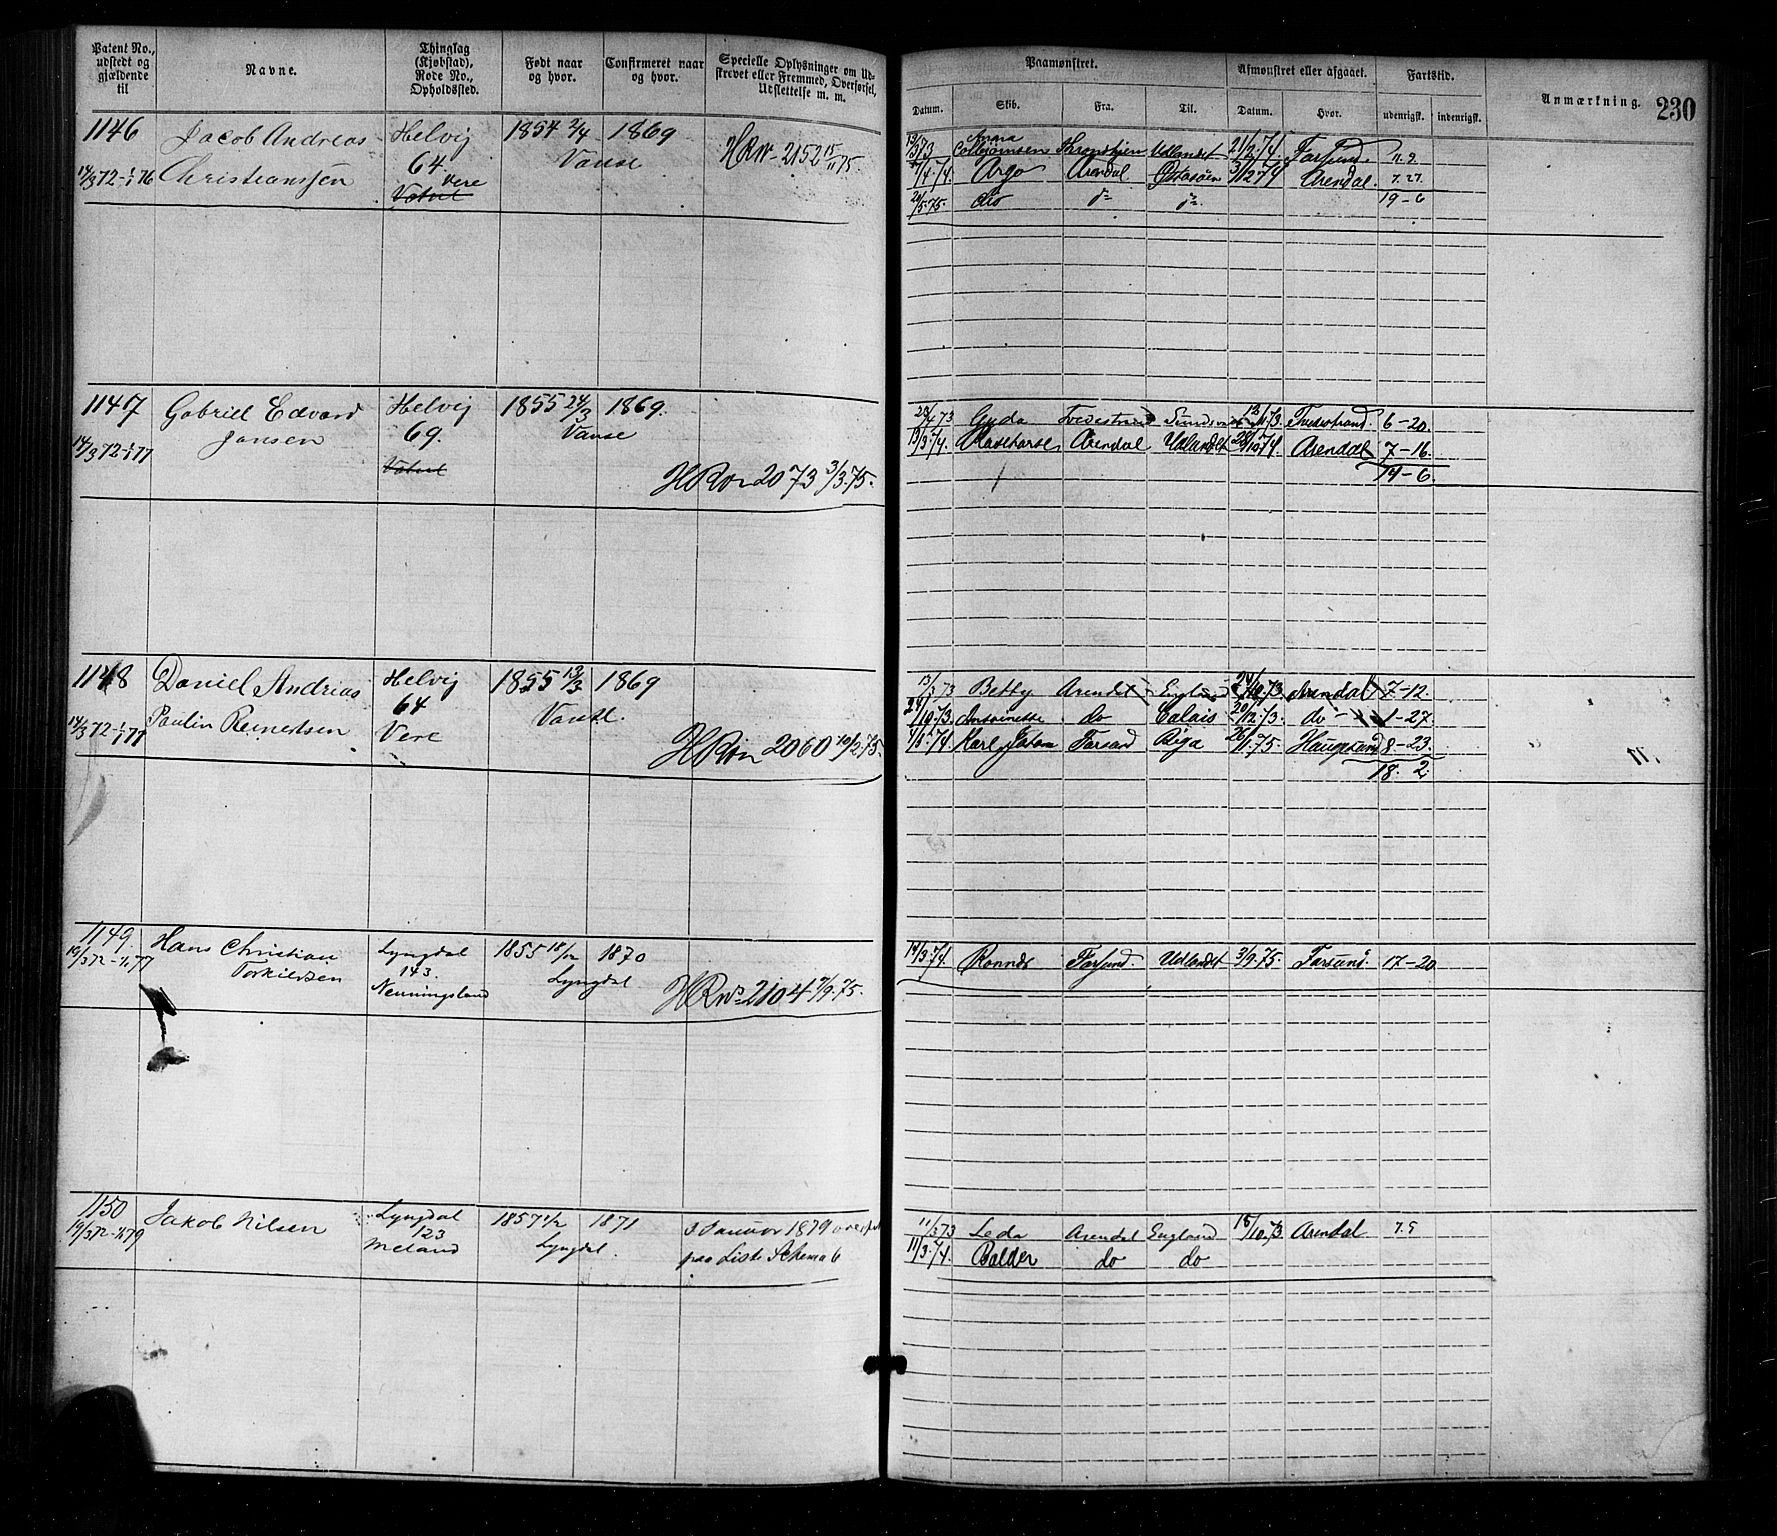 Patent No., udstedt og gjældende til
Navne.
Thinglag (Kjøbstad), Rode No., Opholdssted.
Født naar og hvor.
Confirmeret naar og hvor.
Specielle Oplysninger om Udskrevet eller Fremmed, Overførsel, Udslettelse m. m.
Paamønstret.
Afmønstret eller afgaaet.
Fartstid.
Anmærkning.
230
Datum.
Skib.
Fra.
Til.
Datum.
Hvor.
udenrigsk.
indenrigsk.
1146 Jacob Andreas Helvig 1854 2/4 1869
14/3 72-1/1 76 Christianssen 64. Vanse HRw-2152 15/11 75.
Vere
Vatne
Anna Colbjørnsen Throndhjem Udlandet 21/2 74 Farsund. 11. 9.
7/4 74. Argo Arendal Østasøen 3/12 74 Arendal. 7. 27.
5.75. dio do do 19-6
1147 Gabriel Edvard Helvig 1855 24/3 1869.
14/3 72-1/1 77 Jansen 69. Vanse
HRw 2073 3/3.75.
73 Gyda Tvedestrand 73. Tvedestrand 6-20.
13/3 74. Arendal Udlandet 74. Arendal 7-16.
14-6.
1148 Daniel Andreas Helvig 1855 13/3 1869
14/3 72-1/1 77 Paulin Reinertsen 64 Vanse.
Vere
HRw 2060 10/2.75.
13/3 73 Betty Arendal England 24/10.73. Arendal 7-12.
24/10.73. Antoinette do Calais 20/12 73. do - 1-27.
74 Karl Johan Farsund Riga 26/1.75. Haugesund 8-23.
18. 2.
1149. Hans Christian Lyngdal 1855 18/12 1870
19/3 72-1/1 77 Torkildsen 143. Lyngdal
Nenningsland HRw 2104 7/9.75.
14/3.74 Farsund. Udlandet 3/9.75 Farsund. 17-20
1150 Jakob Nilsen Lyngdal 1857 1871 3 Januar 1879 overført
19/3 72-1/1 79 123 Lyngdal. paa Liste Schema 6
Meland
11/3 73 Leda Arendal England 18/10.73 Arendal 7. 5
11/3.74. Balder do do